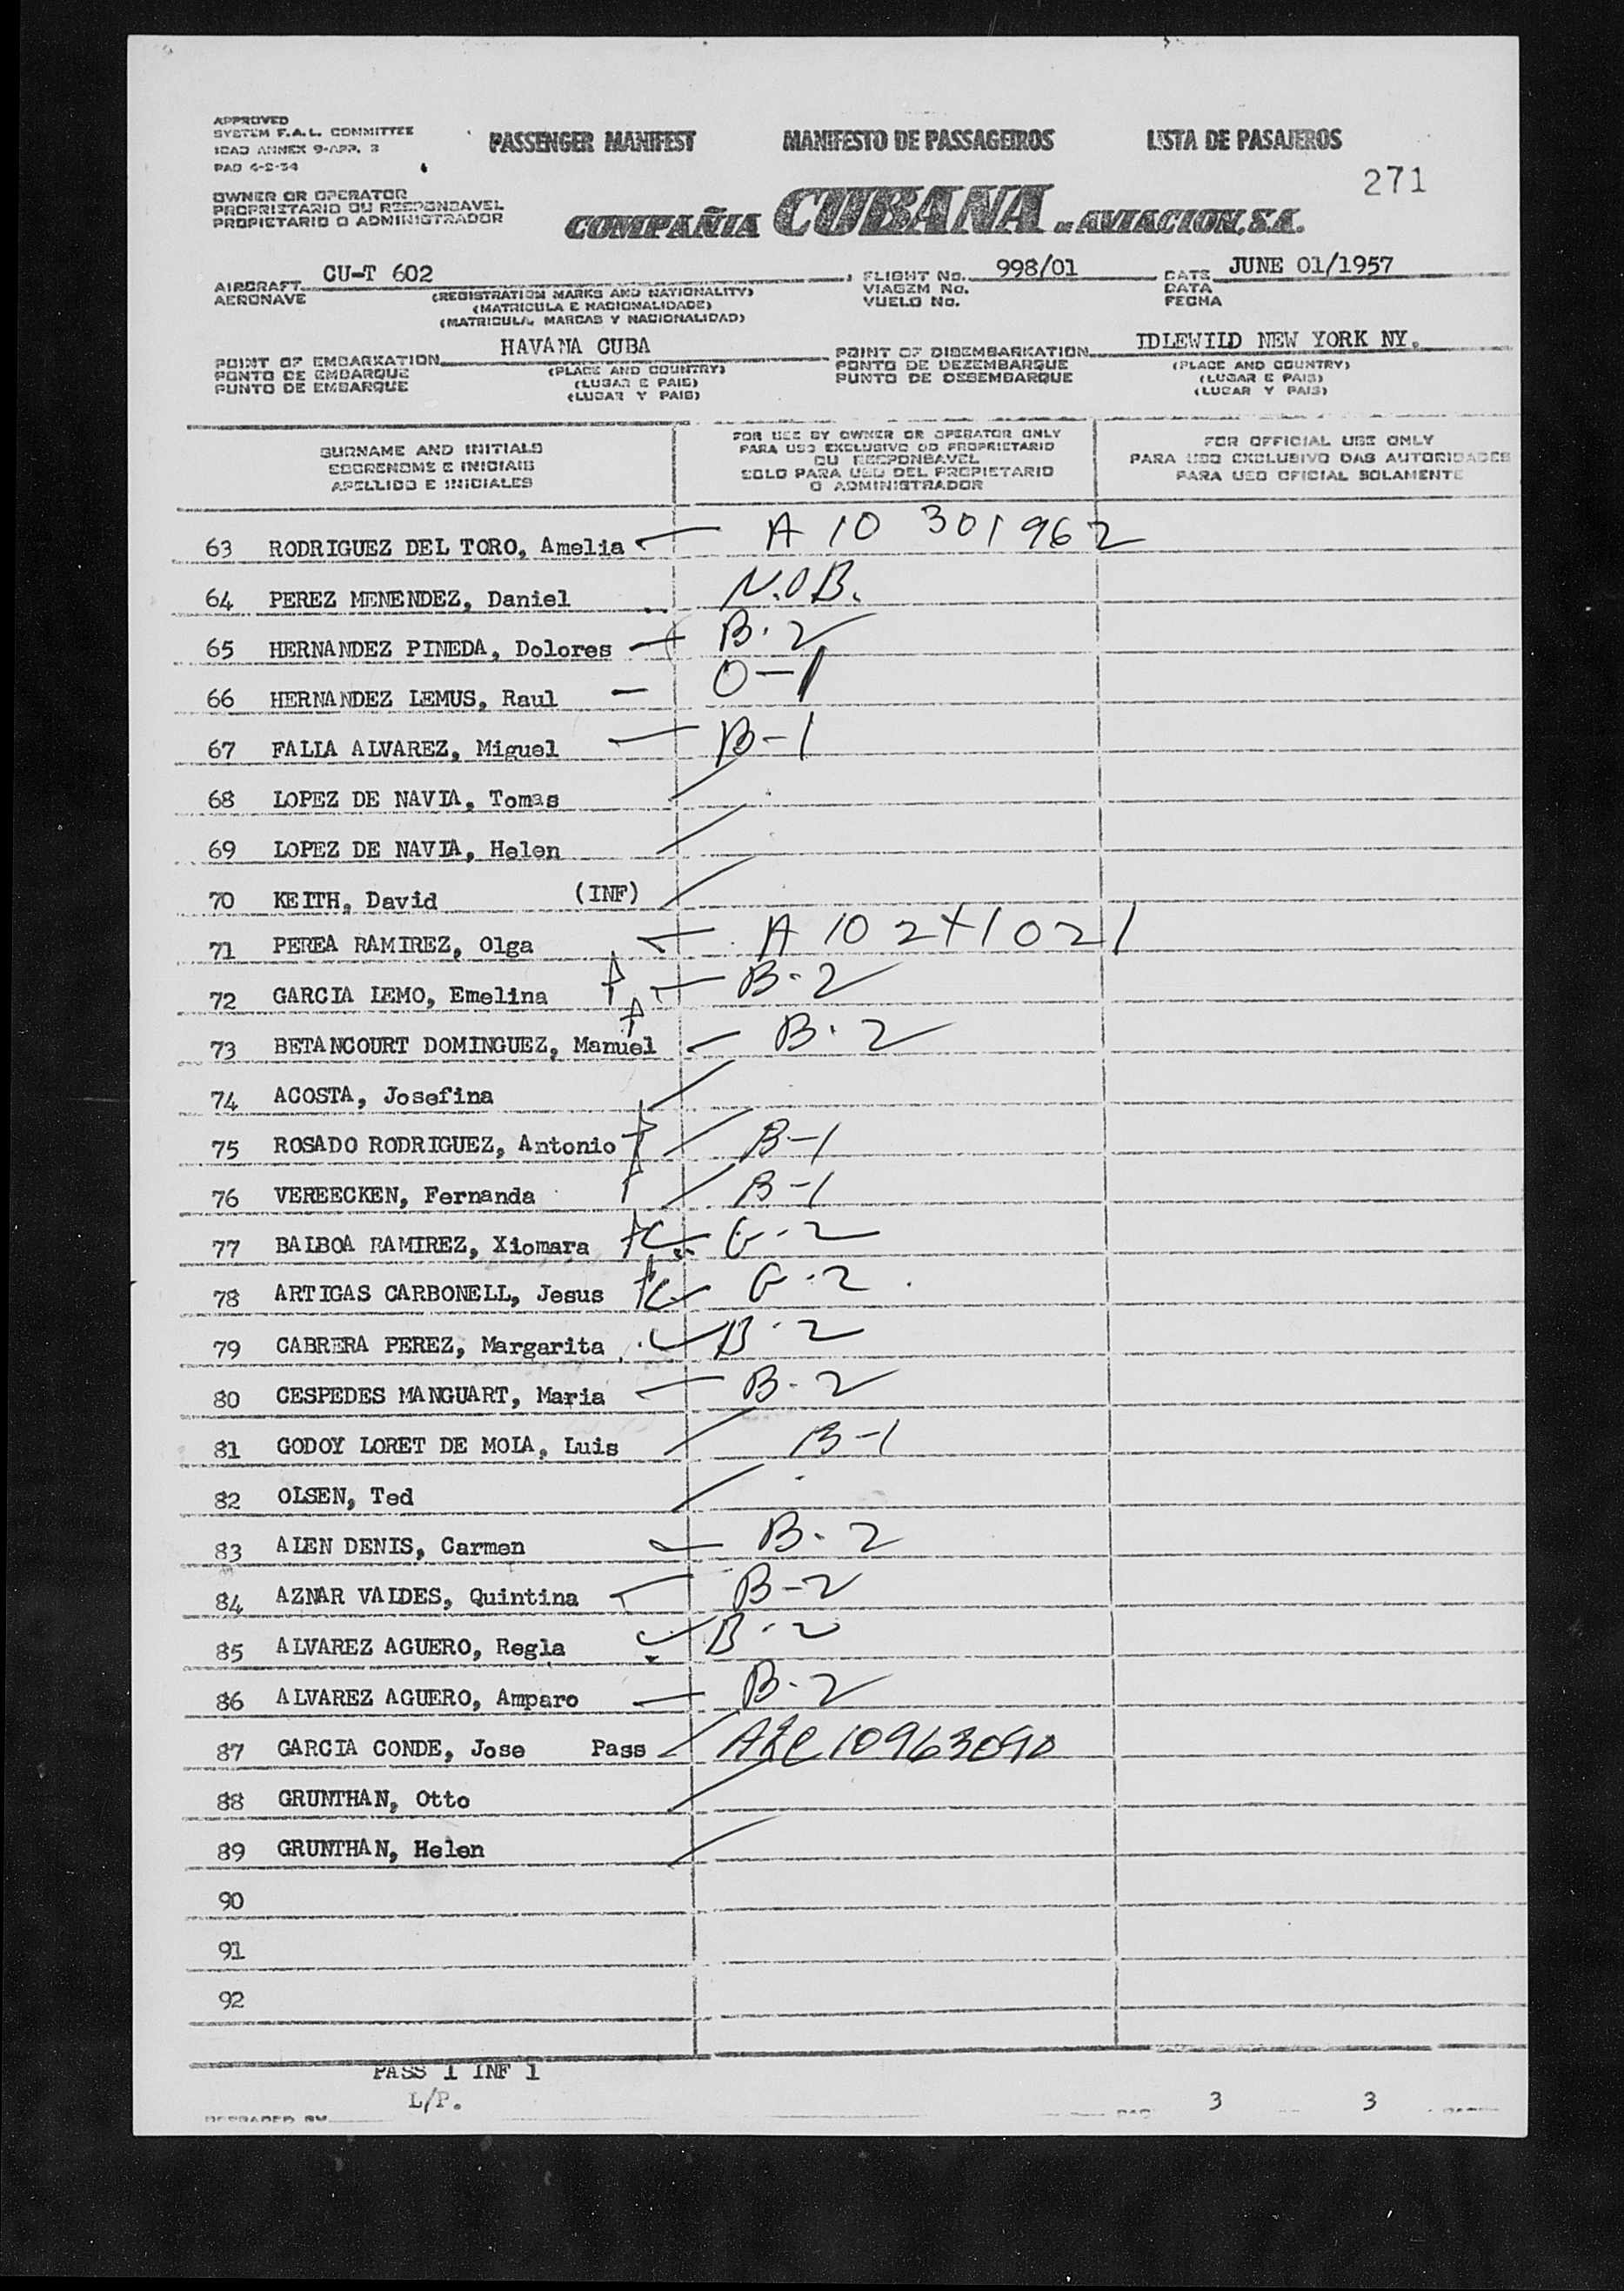 APPROVED
SYSTEM F.A.L. COMMITTEE
ICAO ANNEX 9-APP. 3
PAD 4-2-54
PASSENGER MANIFEST MANIFESTO DE PASSAGEIROS LISTA DE PASAJEROS
271
OWNER OR OPERATOR
PROPRIETARIO OU RESPONSAVEL
PROPIETARIO O ADMINISTRADOR
COMPAÑIA CUBANA DE AVIACION, S.A.
AIRCRAFT CU-T 602 FLIGHT No. 998/01 DATE JUNE 01/1957
AERONAVE (REGISTRATION MARKS AND NATIONALITY) VIAGEM No. DATA
(MATRICULA E NACIONALIDADE) VUELO No. FECHA
(MATRICULA, MARCAS Y NACIONALIDAD)
POINT OF EMBARKATION HAVANA CUBA POINT OF DISEMBARKATION IDLEWIID NEW YORK NY.
PONTO DE EMBARQUE (PLACE AND COUNTRY) PONTO DE DEZEMBARQUE (PLACE AND COUNTRY)
PUNTO DE EMBARQUE (LUGAR E PAIS) PUNTO DE DESEMBARQUE (LUGAR E PAIS)
(LUGAR Y PAIS) (LUGAR Y PAIS)
SURNAME AND INITIALS
SOBRENOME E INICIAIS
APELLIDO E INICIALES
FOR USE BY OWNER OR OPERATOR ONLY
PARA USO EXCLUSIVO DO PROPRIETARIO
OU RESPONSAVEL
SOLO PARA USO DEL PROPIETARIO
O ADMINISTRADOR
FOR OFFICIAL USE ONLY
PARA USO EXCLUSIVO DAS AUTORIDADES
PARA USO OFICIAL SOLAMENTE
63 RODRIGUEZ DEL TORO, Amelia A 10 301962
64 PEREZ MENENDEZ, Daniel N.O.B.
65 HERNANDEZ PINEDA, Dolores B-2
66 HERNANDEZ LEMUS, Raul O-1
67 FALIA ALVAREZ, Miguel B-1
68 LOPEZ DE NAVIA, Tomas
69 LOPEZ DE NAVIA, Helen
70 KEITH, David (INF)
71 PEREA RAMIREZ, Olga A 10 2+1021
72 GARCIA LEMO, Emelina B-2
73 BETANCOURT DOMINGUEZ, Manuel B-2
74 ACOSTA, Josefina
75 ROSADO RODRIGUEZ, Antonio B-1
76 VEREECKEN, Fernanda B-1
77 BALBOA RAMIREZ, Xiomara G-2
78 ARTIGAS CARBONELL, Jesus G-2
79 CABRERA PEREZ, Margarita B-2
80 CESPEDES MANGUART, Maria B-2
81 GODOY LORET DE MOIA, Luis B-1
82 OLSEN, Ted
83 ALEN DENIS, Carmen B-2
84 AZNAR VALDES, Quintina B-2
85 ALVAREZ AGUERO, Regla B-2
86 ALVAREZ AGUERO, Amparo B-2
87 GARCIA CONDE, Jose Pass ARC 10963090
88 GRUNTHAN, Otto
89 GRUNTHAN, Helen
90
91
92
PASS 1 INF 1
L/P.
PREPARED BY 3 3